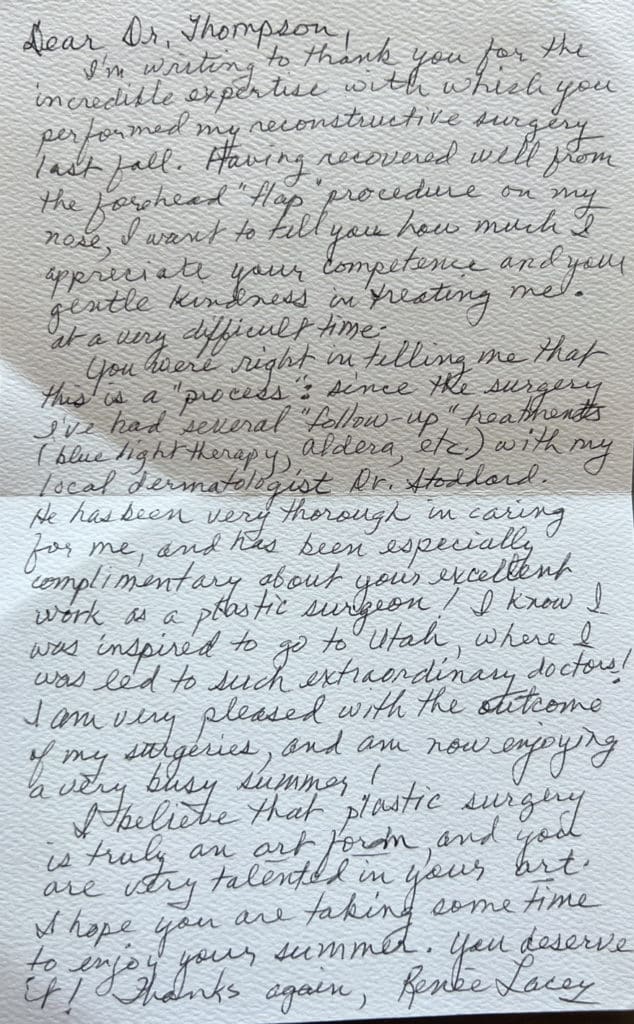 Dear Dr. Thompson,
I'm writing to thank you for the
incredible expertise with which you
performed my reconstructive surgery
last fall. Having recovered well from
the forehead "flap" procedure on my
nose, I want to tell you how much I
appreciate your competence and your
gentle kindness in treating me.
at a very difficult time.
You were right in telling me that
this is a "process": since the surgery
I've had several "follow-up" treatments
(blue light therapy, aldera, etc) with my
local dermatologist Dr. Stoddard.
He has been very thorough in caring
for me, and has been especially
complimentary about your excellent
work as a plastic surgeon! I know I
was inspired to go to Utah, where I
was led to such extraordinary doctors!
I am very pleased with the outcome
of my surgeries, and am now enjoying
a very busy summer!
I believe that plastic surgery
is truly an art form, and you
are very talented in your art.
I hope you are taking some time
to enjoy your summer. You deserve
it! Thanks again, Renée Lacey